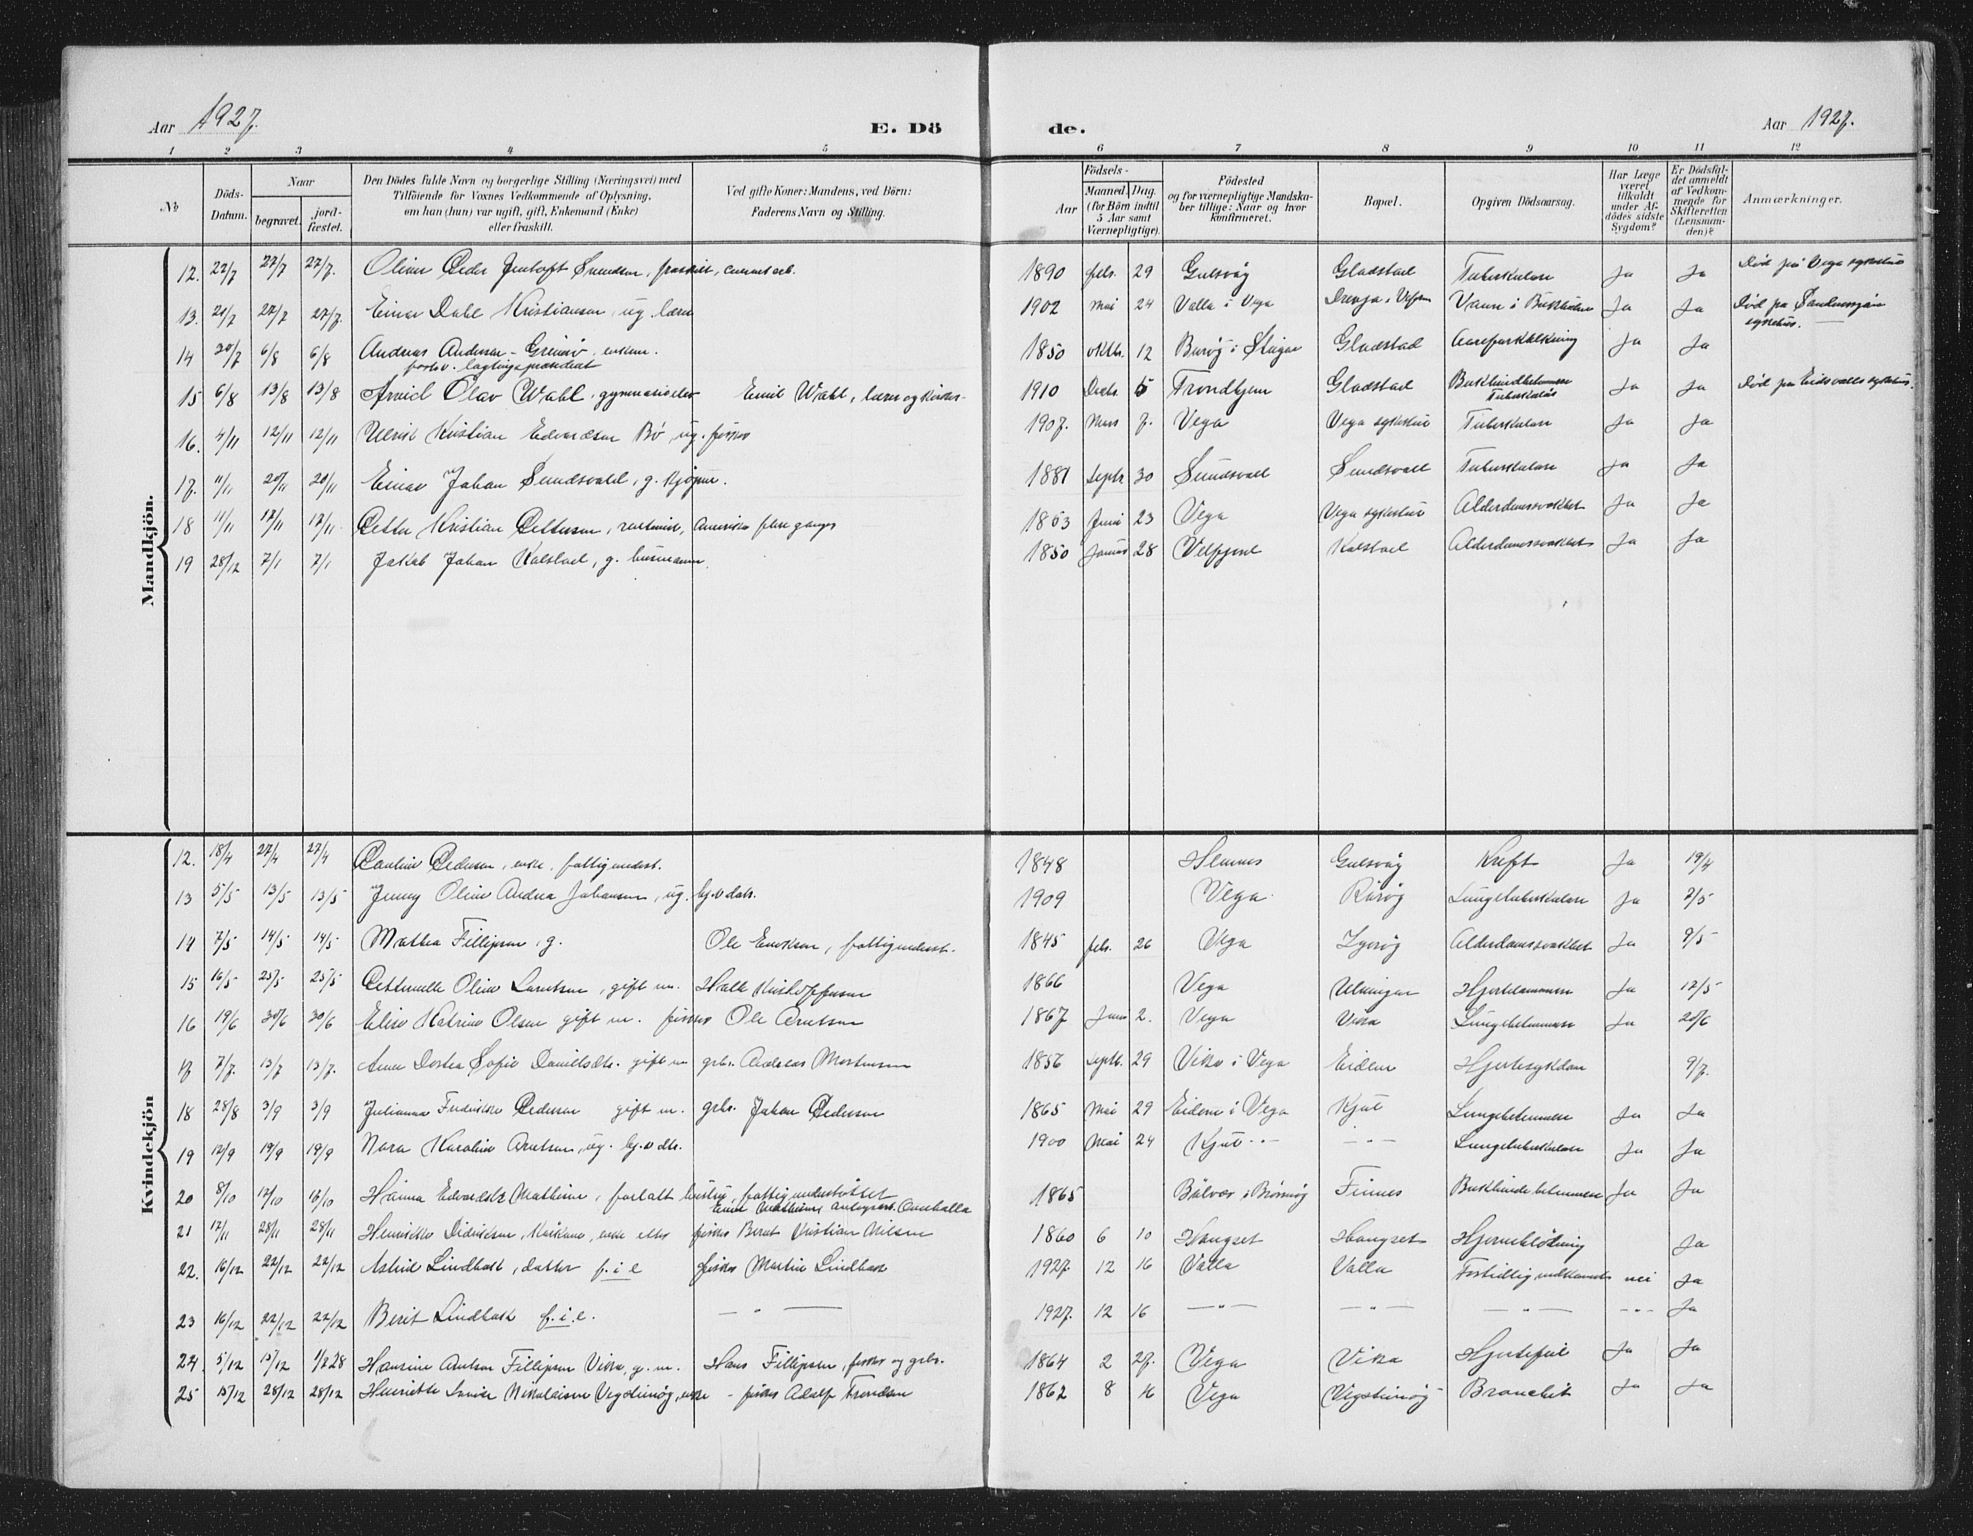 Aar 1927.
E. Dö
de.
Aar 1927.
1 2 3 4 5 6 7 8 9 10 11 12
No
Döds-Datum.
Naar
begravet.
jord-fæstet.
Den Dödes fulde Navn og borgerlige Stilling (Næringsvei) med
Tilföiende for Voxnes Vedkommende af Oplysning,
om han (hun) var ugift, gift, Enkemand (Enke)
eller fraskilt.
Ved gifte Koner: Mandens, ved Börn:
Faderens Navn og Stilling.
Födsels-
Aar
Maaned. Dag.
(for Börn indtil
5 Aar samt
Værnepligtige).
Födested
og for værnepligtige Mandska-
ber tillige: Naar og hvor
konfirmeret.
Bopæl.
Opgiven Dödsaarsag.
Har Læge
været
tilkaldt
under Af-
dödes sidste
Sygdom?
Er Dödsfal-
det anmeldt
af Vedkom-
mende for
Skifteretten
(Lensman-
den)?
Anmærkninger.
Mandkjön.
12. 22/7 27/7 27/7. Oliver Peder Jentoft Svendsen, fraskilt, 1890 febr. 29 Gulsvåg Gladstad Tuberkulose Ja Ja Död på Vega sykehus
13. 21/7 27/7 27/7. Einar Dahl Kristiansen, ug. lærer 1902 Mai 24 Valla i Vega Vann i Bukhulen Ja Ja Död på Sandnessjöen
sykehus.
14 30/7 6/8 6/8 Andreas Andersen - Greinsö, enkem. 1850 oktbr. 12 Buröy i Gladstad Aareforkalkning Ja Ja
forhv. lagtingspræsident
15 6/8 13/8 13/8 Arvid Olav Wahl, gymnasieelev Emil Wahl, lærer og kirkes- 1910 Decbr. 5 Trondhjem Gladstad Bukhindebetennelse Ja Ja Död på Eidsvolls sykehus.
Tuberkulös
16. 4/11 12/11 12/11 Ulrik Kristian Edvardsen Bö, ug. fisker 1907. Mars 7. Vega Vega sykehus Tuberkulose Ja Ja
17. 11/11 20/11 20/11 Einar Johan Sundsvold, g. 1881 Septr 30 Sundsvoll Sundsvoll Tuberkulose Ja Ja
18 11/11 17/11 17/11. Petter Kristian Pettersen, rentenist, Amerika flere ganger 1853 Juni 23 Vega Vega sykehus Alderdomssvakhet Ja Ja
19 28/12 7/1 7/1 Jakob Johan Kalstad, g. husmann. 1850 Januar 28 Velfjord Kalstad Alderdomssvakhet Ja Ja
Kvindekjön
12. 18/4 27/4 27/4 Pauline Pedersen, enke. fattigunderst. 1848 Hemnes Gulsvåg Kreft Ja 19/4
13 5/5 13/5 13/5 Jenny Oline Andrea Johansen, ug. hj.v. datr. 1909 Vega Råröy Lungetuberkulose Ja 7/5
14 7/5 14/5 14/5 Mathea Fillipsen, g. Ole Eriksen, fattigunderst. 1845 febr. 26 Vega Alderdomssvakhet Ja 9/5
15 16/5 25/5 25/5 Petternelle Oline Larntsen, gift m. Kristoffersen 1866 Vega Ulvingen Hjertelammelse Ja 17/5
16 19/6 30/6 30/6 Elise Katrine Olsen gift m. fisker Ole Arntsen 1867 Janr. 2. Vega Vika Lungebetennelse Ja 20/6
17 7/7. 13/7 13/7. Anne Dortea Sofie Danielsdtr. gift m grbr. Andreas Mortensen 1856 Septbr. 29 Vika i Vega Eidem Hjertesykdom 9/7.
18 28/8 3/9 3/9 Julianna Fredrikke Pedersen gift m. grbr. Johan Pedersen 1865 Mai 29 Eidem i Vega Kjul Lungebetennelse Ja Ja
19 12/9 19/9 19/9 Nora Karoline Arntsen, ug. hj.v. dtr. 1900 Mai 24 Kjul -"- -"- Lungetuberkulose Ja Ja
20 8/10 17/10 16/10 Hanna Edvardsdtr Mathisen, forlatt hustru, fattigunderstöttet 1865 Bölvær i Brönnöy Finnes Bukhindebetennelse Ja Ja
21 17/11 28/11 28/11 Henrikke Didriksen, enke etter fisker Bernt Kristian Nilsen 1860 6 10 Hongset Hongset Hjerneblödning Ja
22. 16/12 22/12 22/12 Astrid Lindbak, datter f.i.e fisker Martin Lindbak 1927. 12 16 Valla Valla Fortidlig nedkomst nei Ja
23 16/12 22/12 22/12 Berit Lindbak f.i.e. -"- 1927. 12 16 -"- -"- -"- -"- Ja
24. 5/12 15/12 1/2 28 Hansine Arntsen Fillipsen Vika, g. m. Hans Fillipsen, fisker og grbr. 1864 2 27. Vega Vika Hjertefeil Ja Ja
25 15/12 28/12 28/12 Henriette Nikolaisen Vegsteinöy, enke - fisker Adolf Trondsen 1862 8 16 Vega Vegsteinöy Bronchit Ja Ja